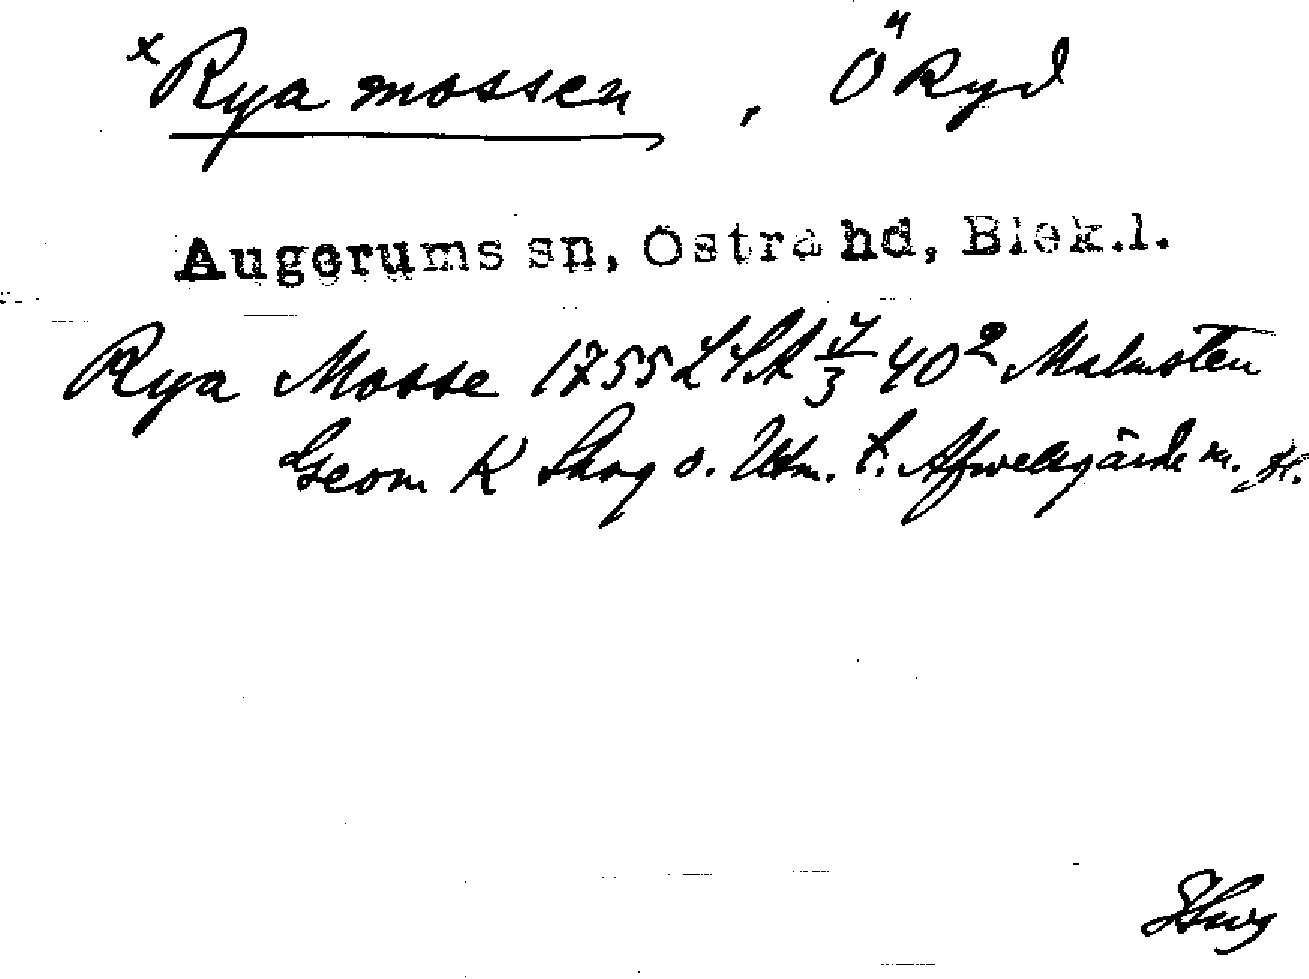 x Rya mossen, Ö Ryd
Augerums sn, Östra hd, Blek.l.
Rya Mosse 1755 LSA 4/3 40² Malmsten
Geom K Skog o. Utm. t. Afwelsgärde m. fl.